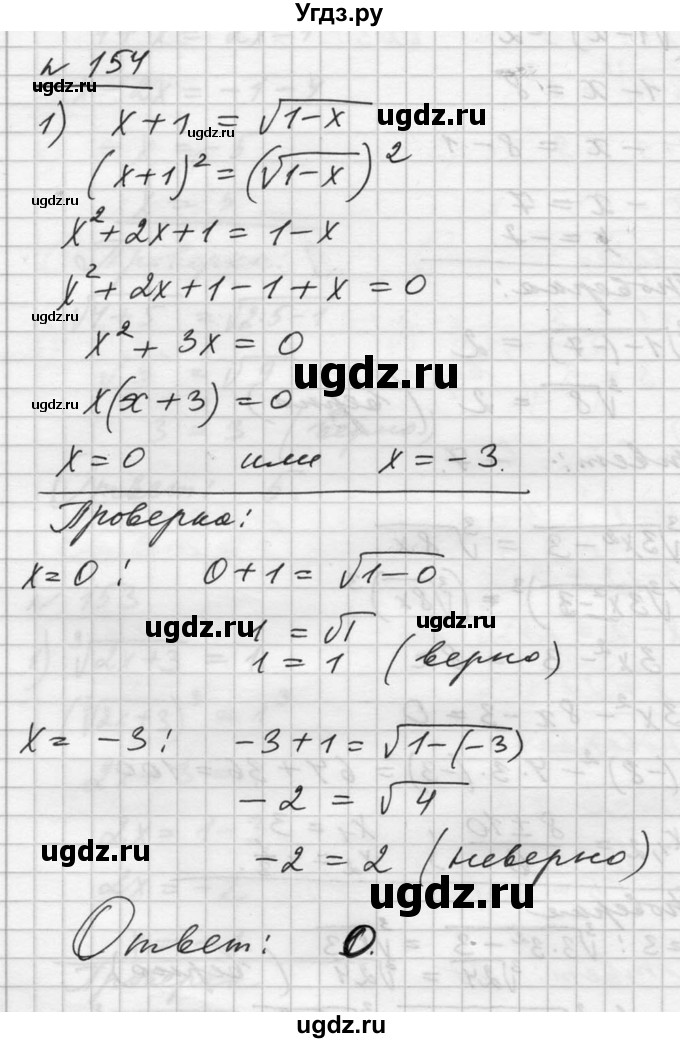 Угдз.ру
№ 154
1) x+1 = √1-x
(x+1)² = (√1-x)²
x²+2x+1 = 1-x
x²+2x+1-1+x = 0
x²+3x = 0
x(x+3) = 0
x=0 или x=-3.
Проверка:
x=0: 0+1 = √1-0
1 = √1
1 = 1 (верно)
x = -3: -3+1 = √1-(-3)
-2 = √4
-2 = 2 (неверно)
Ответ: 0.
ugdz.ru
ugdz.ru
ugdz.ru
ugdz.ru
ugdz.ru
ugdz.ru
ugdz.ru
ugdz.ru
ugdz.ru
ugdz.ru
ugdz.ru
ugdz.ru
ugdz.ru